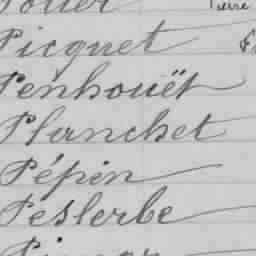 Pierre
Picquet
Penhouët
Planchet
Pépin
Peslerbe